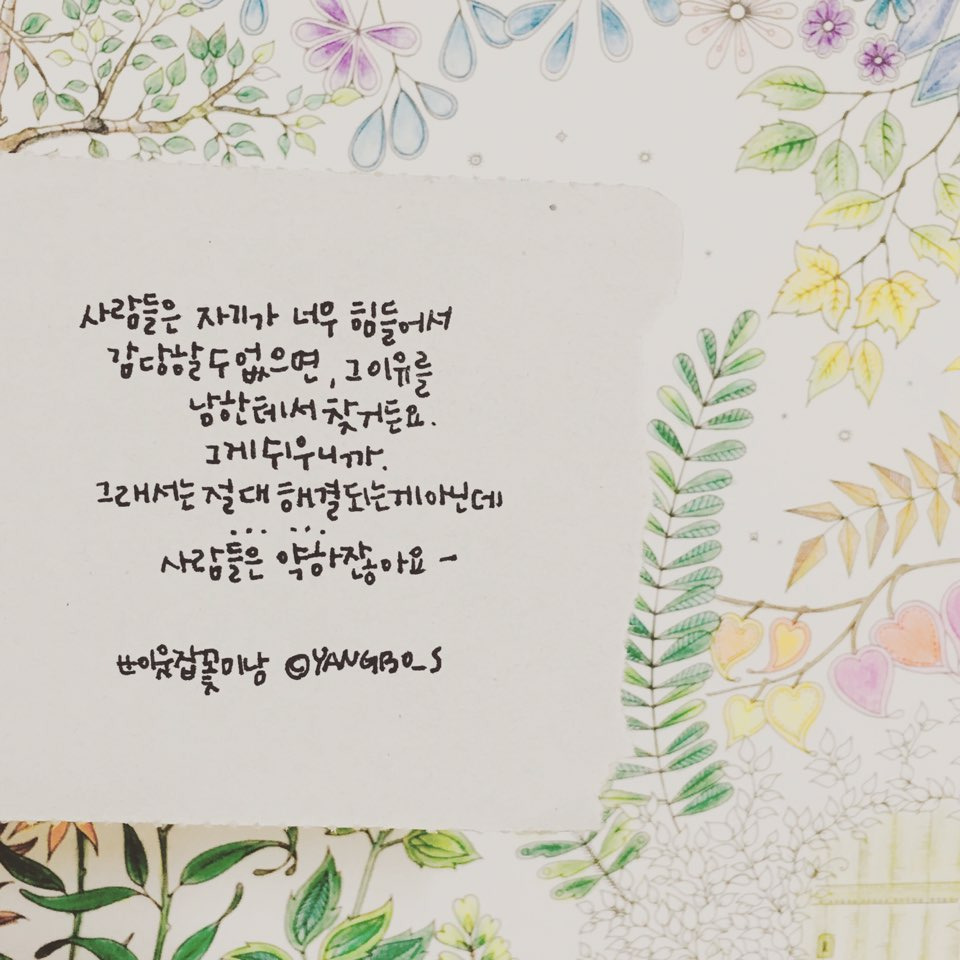 사람들은 자기가 너무 힘들어서
감당할 수 없으면, 그 이유를
남한테서 찾거든요.
그게 쉬우니까.
그래서는 절대 해결되는게 아닌데
... ...
사람들은 약하잖아요 -
#이웃집꽃미남 ©YANGBO_S